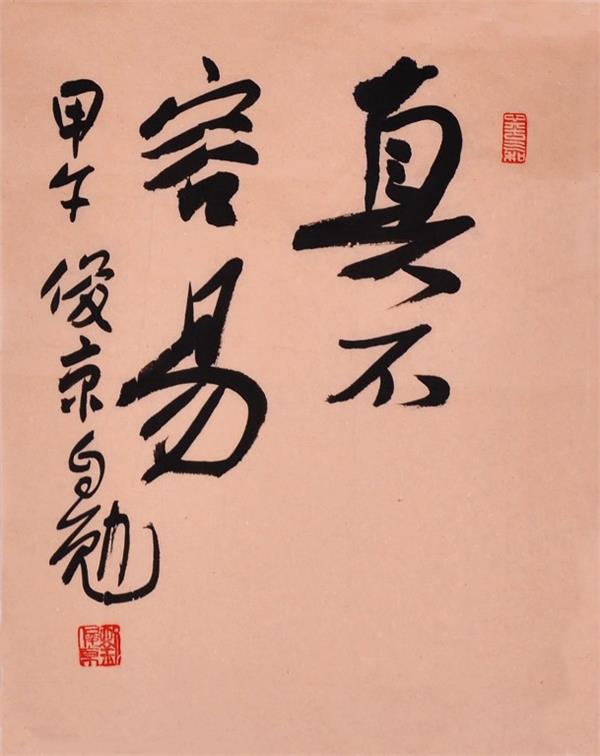 真不
容易
甲午 俊京自勉